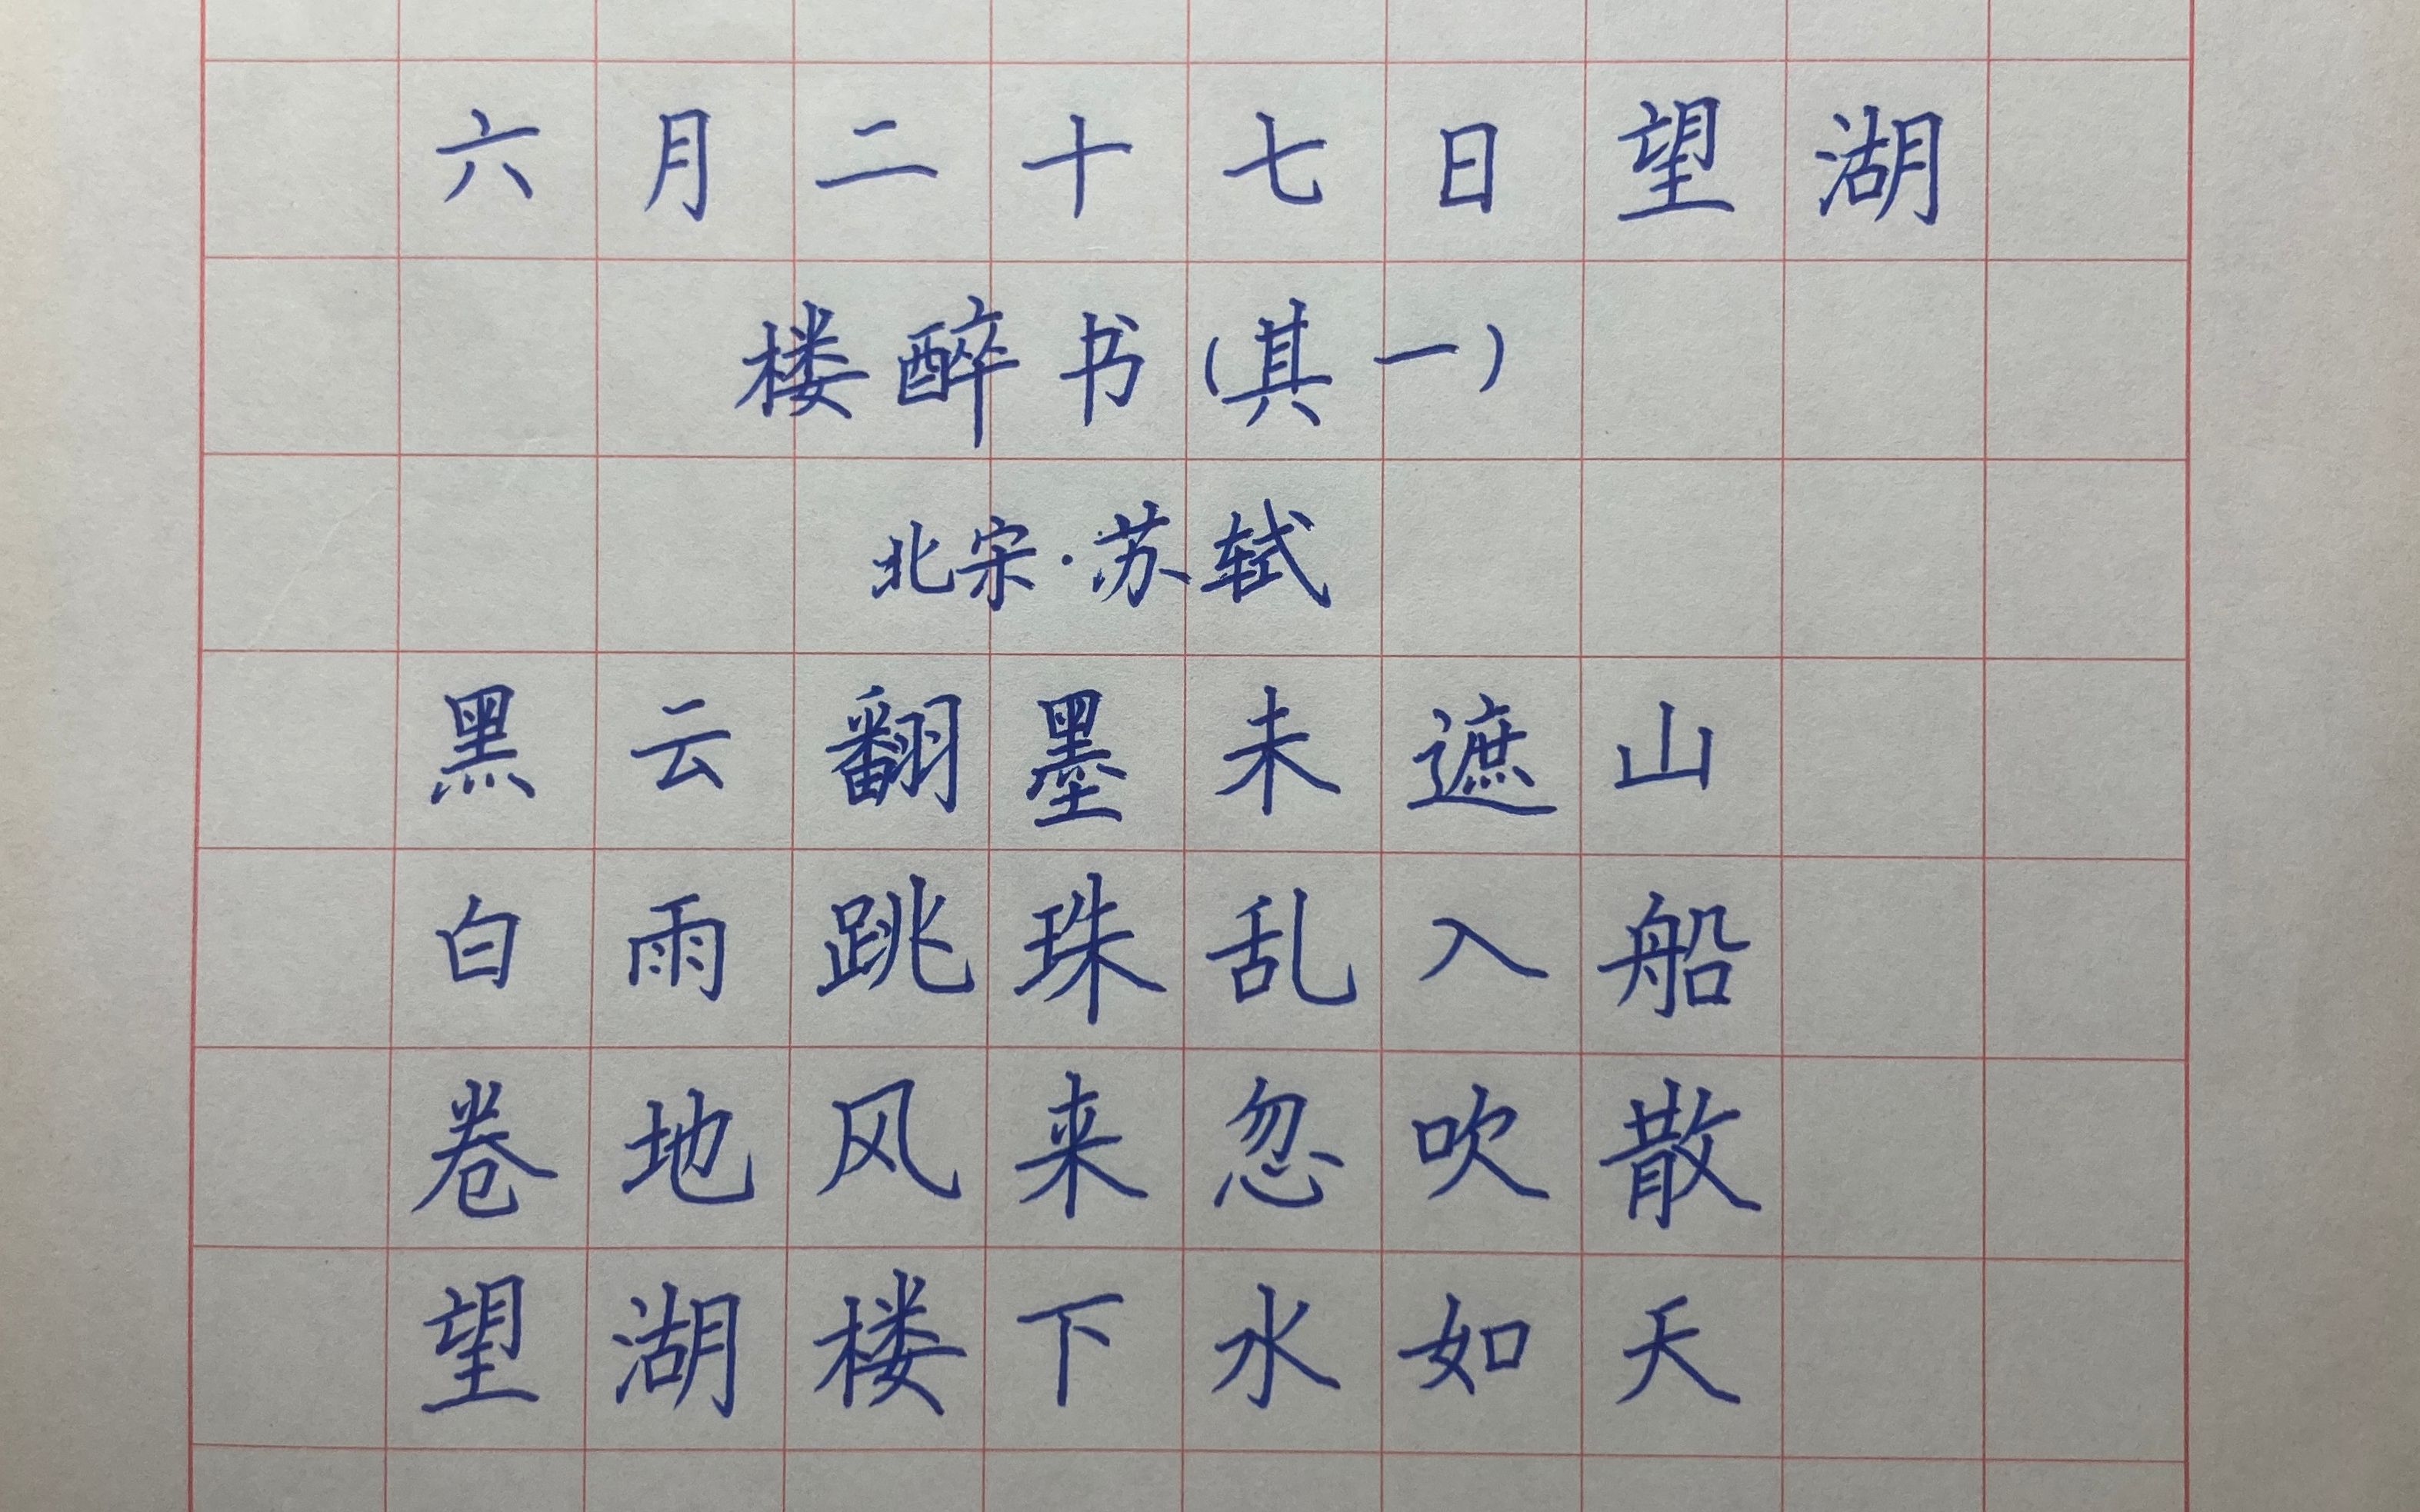 六月二十七日望湖
楼醉书(其一)
北宋·苏轼
黑云翻墨未遮山
白雨跳珠乱入船
卷地风来忽吹散
望湖楼下水如天